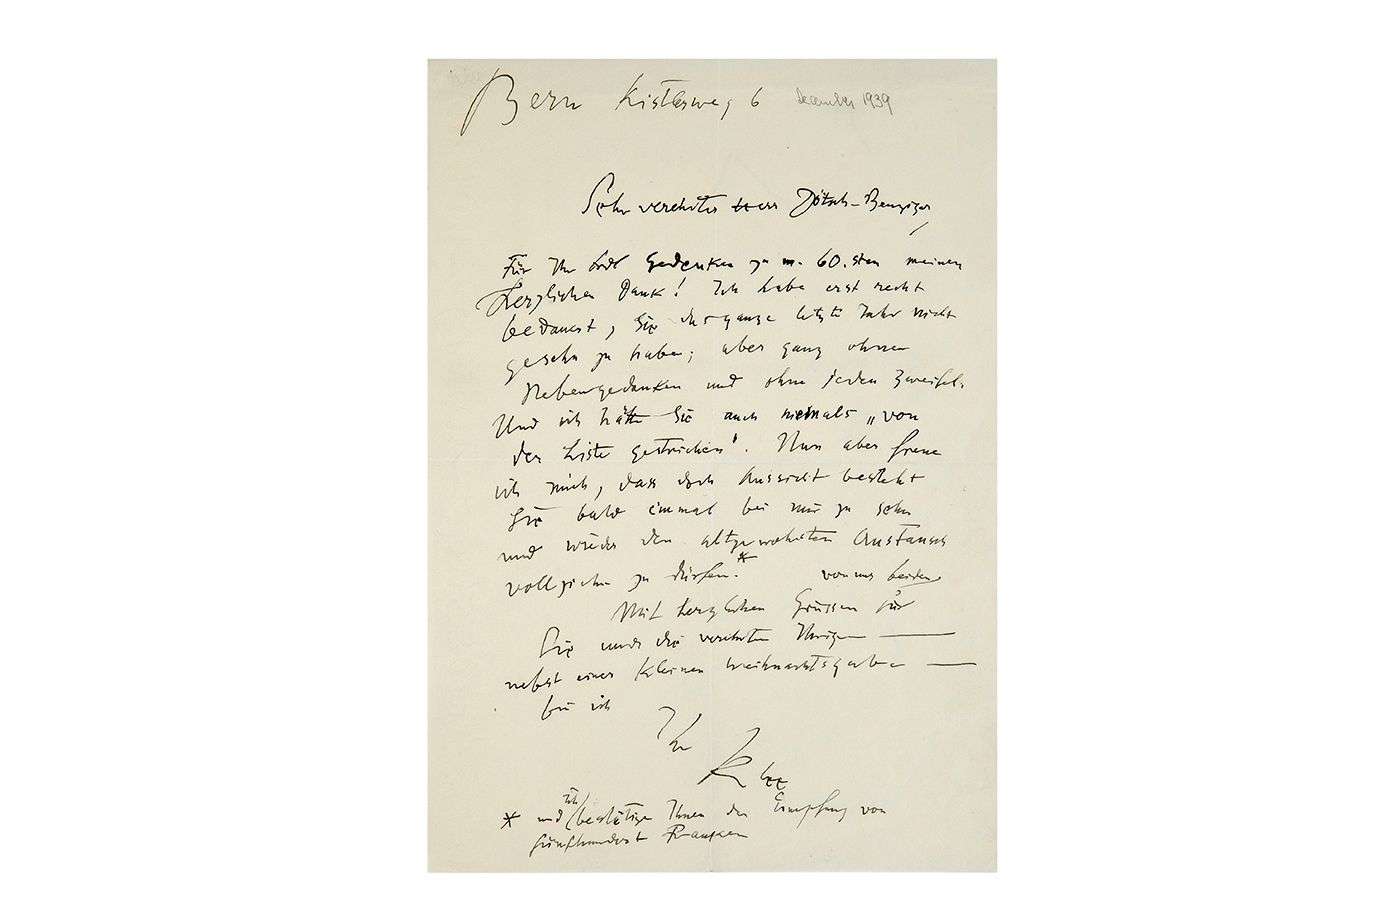 Bern Kistlerweg 6 December 1939
Sehr verehrter Herr Dötsch-Benziger,
Für Ihr Gedenken zu m. 60.sten meinen
herzlichen Dank! Ich habe erst recht
bedauert, Sie das ganze letzte Jahr nicht
gesehn zu haben; aber ganz ohne
Nebengedanken und ohne jeden Zweifel.
Und ich hätte Sie auch niemals „von
der Liste gestrichen". Nun aber freue
ich mich, dass doch Aussicht besteht
Sie bald einmal bei mir zu sehn
und wieder den altgewohnten Austausch
vollziehn zu dürfen.* von uns beiden
Mit herzlichen Grüssen für
Sie und die verehrten Ihrigen —
nebst einer kleinen Weihnachtsgabe —
bin ich
Ihr Klee
* und ich bestätige Ihnen den Empfang von
fünfhundert Franken